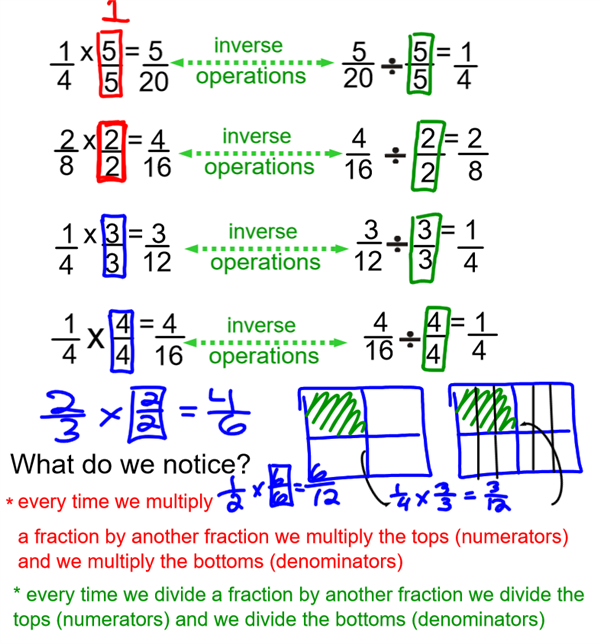 1
1/4 x 5/5 = 5/20 inverse operations 5/20 ÷ 5/5 = 1/4
2/8 x 2/2 = 4/16 inverse operations 4/16 ÷ 2/2 = 2/8
1/4 x 3/3 = 3/12 inverse operations 3/12 ÷ 3/3 = 1/4
1/4 x 4/4 = 4/16 inverse operations 4/16 ÷ 4/4 = 1/4
2/3 x 2/2 = 4/6
What do we notice?
1/2 x 6/6 = 6/12
1/4 x 3/3 = 3/12
* every time we multiply
a fraction by another fraction we multiply the tops (numerators)
and we multiply the bottoms (denominators)
* every time we divide a fraction by another fraction we divide the
tops (numerators) and we divide the bottoms (denominators)